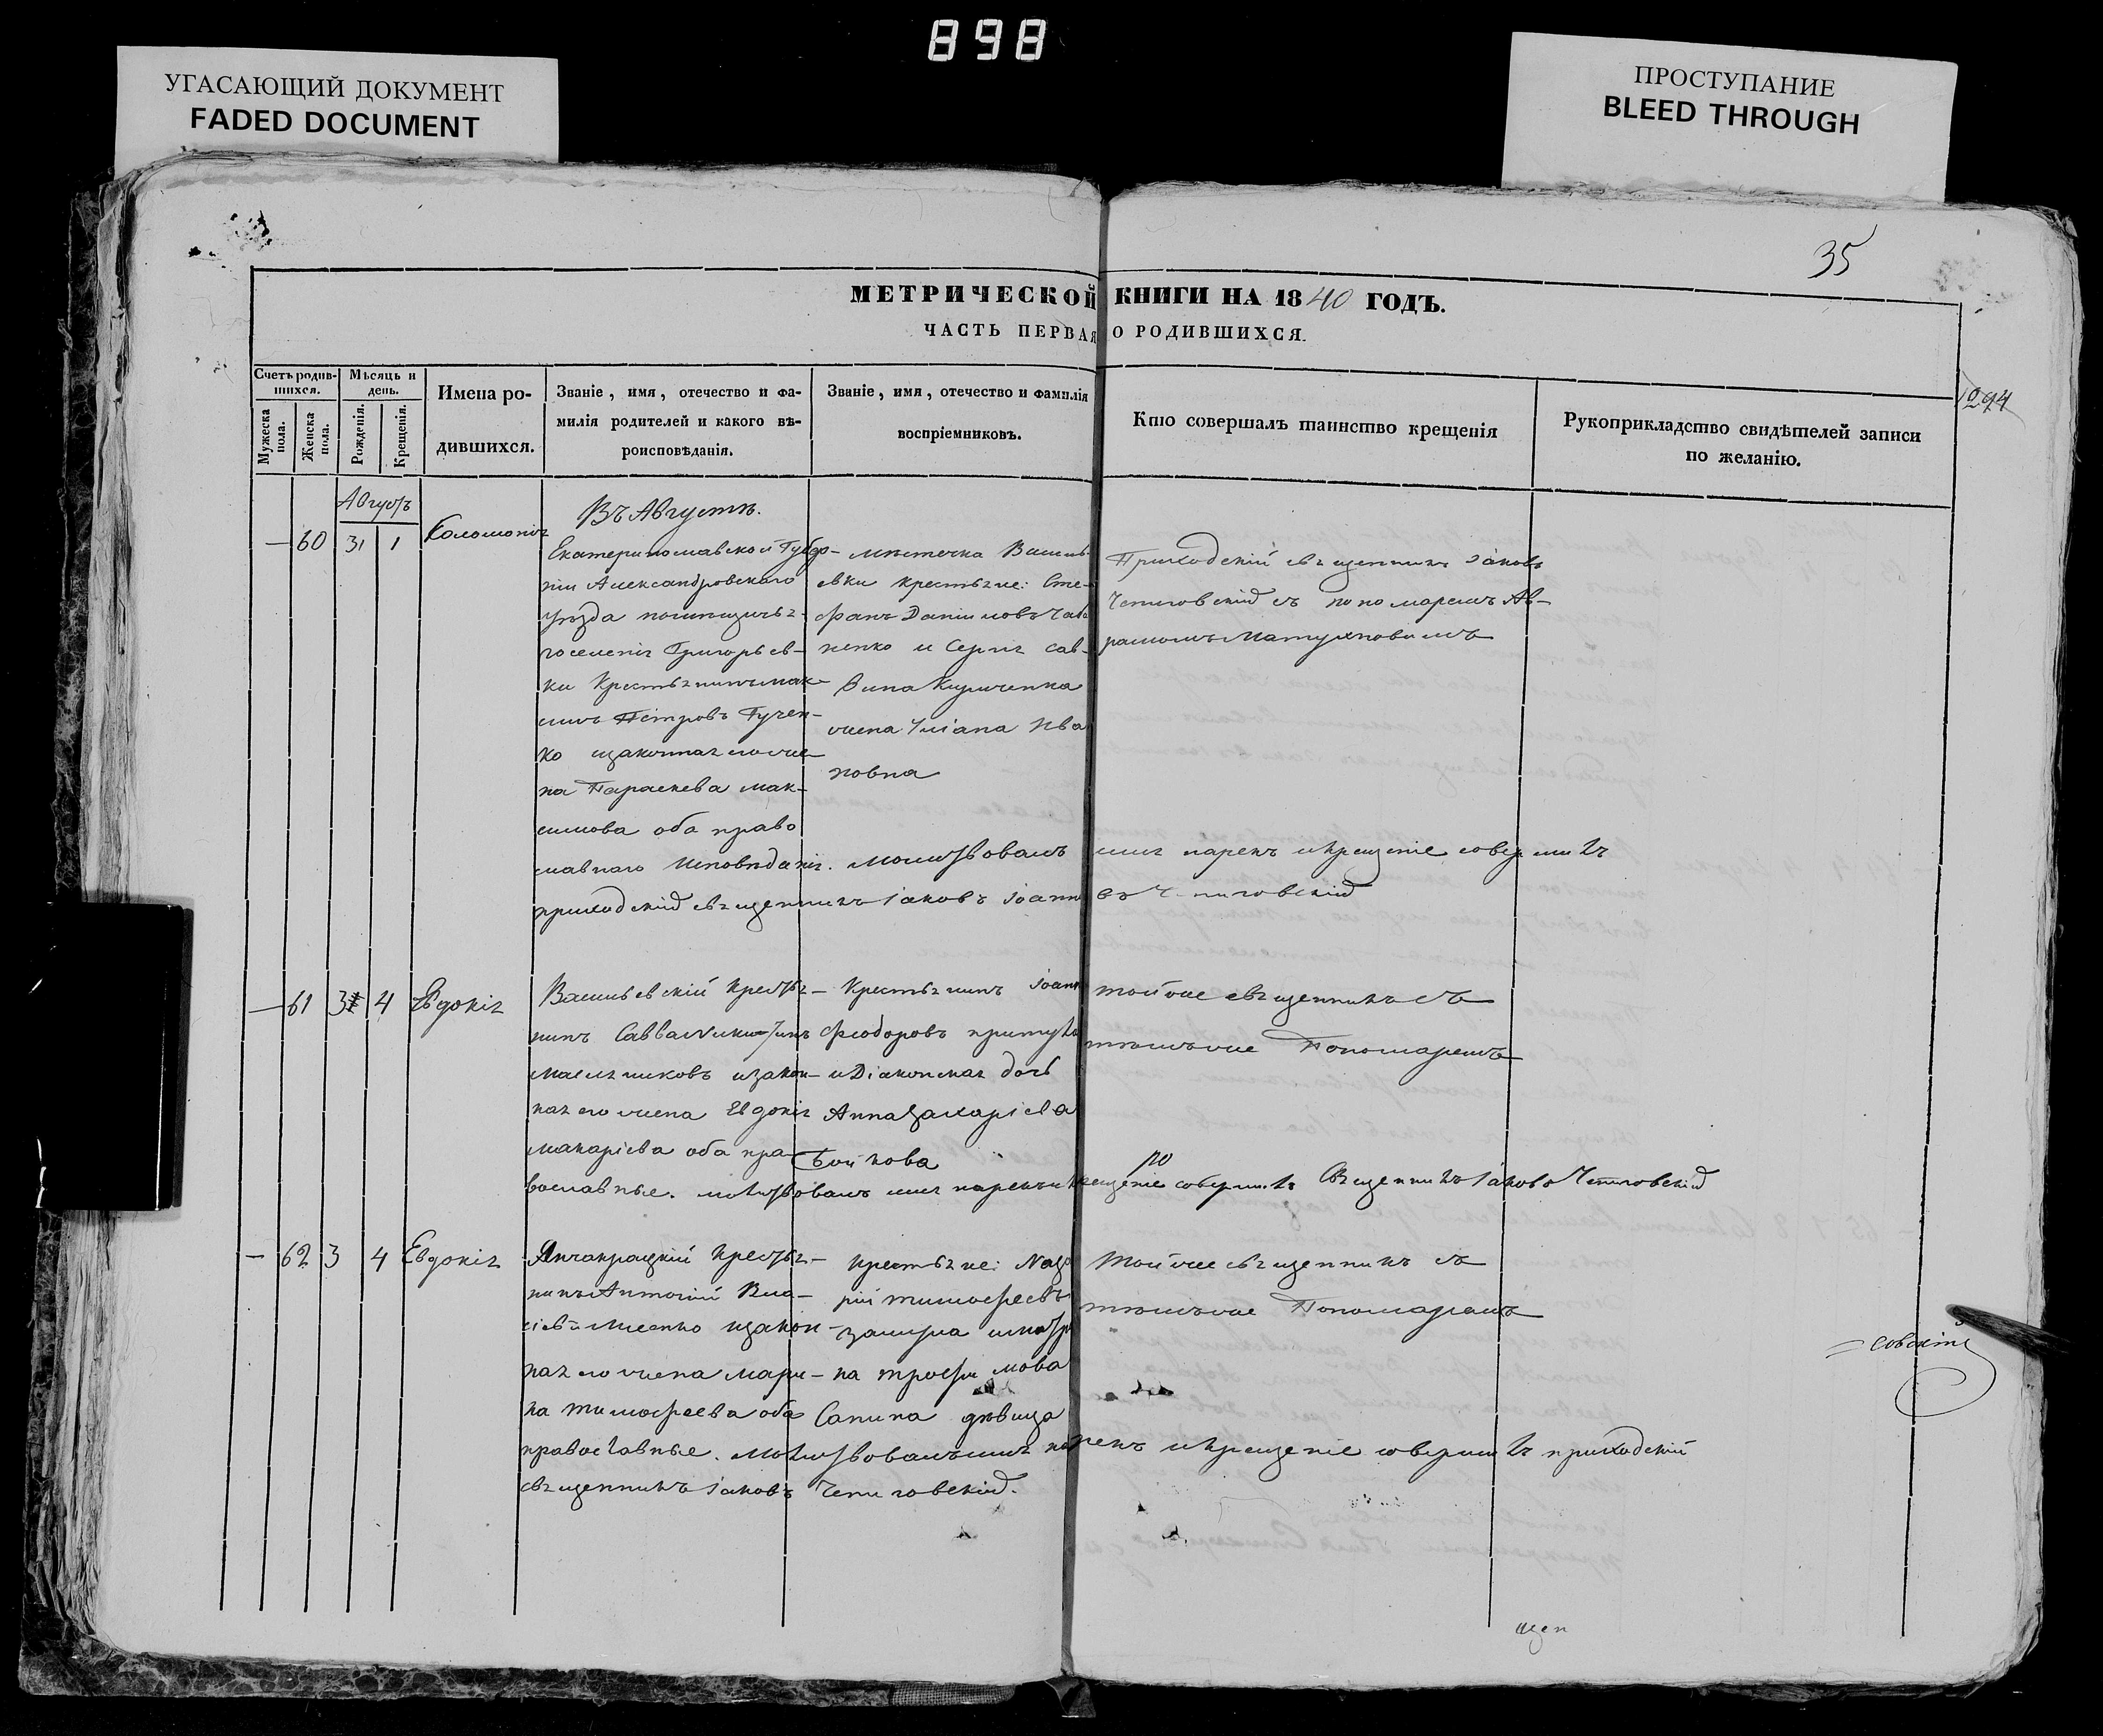 898
УГАСАЮЩИЙ ДОКУМЕНТ
FADED DOCUMENT
ПРОСТУПАНИЕ
BLEED THROUGH
35
МЕТРИЧЕСКОЙ КНИГИ НА 1840 ГОДЪ.
ЧАСТЬ ПЕРВАЯ О РОДИВШИХСЯ.
1294
Счетъ родив-
шихся.
Мужеска пола.
Женска пола.
Мѣсяцъ и
день.
Рожденія.
Крещенія.
Имена ро-
дившихся.
Званіе, имя, отечество и фа-
милія родителей и какого вѣ-
роисповѣданія.
Званіе, имя, отечество и фамилія
воспріемниковъ.
Кто совершалъ таинство крещенія
Рукоприкладство свидѣтелей записи
по желанію.
Августъ
Въ Августѣ.
— 60 31 1 Соломонія
Екатеринославской Губер-
ніи Александровскаго
уѣзда помѣщичья-
го селенія Григорьев-
ки Крестьянинъ Мак-
симъ Петровъ Гучен-
ко изаконная его же-
на Параскева Мак-
симова оба право
славнаго исповѣданія. Молитвовалъ имя нарекъ икрещеніе совершилъ
приходскій священникъ Іаковъ Іоанновъ Чепиговскій
мѣстечка Василь-
евки крестьяне: Сте-
фанъ Даніиловъ
ненко и Сергія Сав-
вина Кириченка
жена Уліана Ива
новна
Приходскій священникъ Іаковъ
Чепиговскій съ пономаремъ Ав-
рамомъ
— 61 3 4 Евдокія
Васильевскій крестья-
нинъ Савва Никитинъ
Масляниковъ изакон-
ная его жена Евдокія
Макаріева оба пра-
вославные. молитвовалъ имя нарекъ и крещеніе совершилъ Священникъ Іаковъ Чепиговскій
Крестьянинъ Іоаннъ
Феодоровъ
и Діаконская дочь
Анна Захаріева
Бойкова
тойже священникъ съ
тѣмъже Пономаремъ
— 62 3 4 Евдокія
Янчакрацкій крестья-
нинъ Антоній Вла-
сіевъ изакон-
ная его жена Мари-
на Тимофеева оба
православные. Молитвовалъ имя нарекъ икрещеніе совершилъ приходскій
священникъ Іаковъ Чепиговскій.
крестьяне: Наза
рій Тимофеевъ
на Трофимова
Сапина дѣвица
Тойже священникъ съ
тѣмъже Пономаремъ
щен